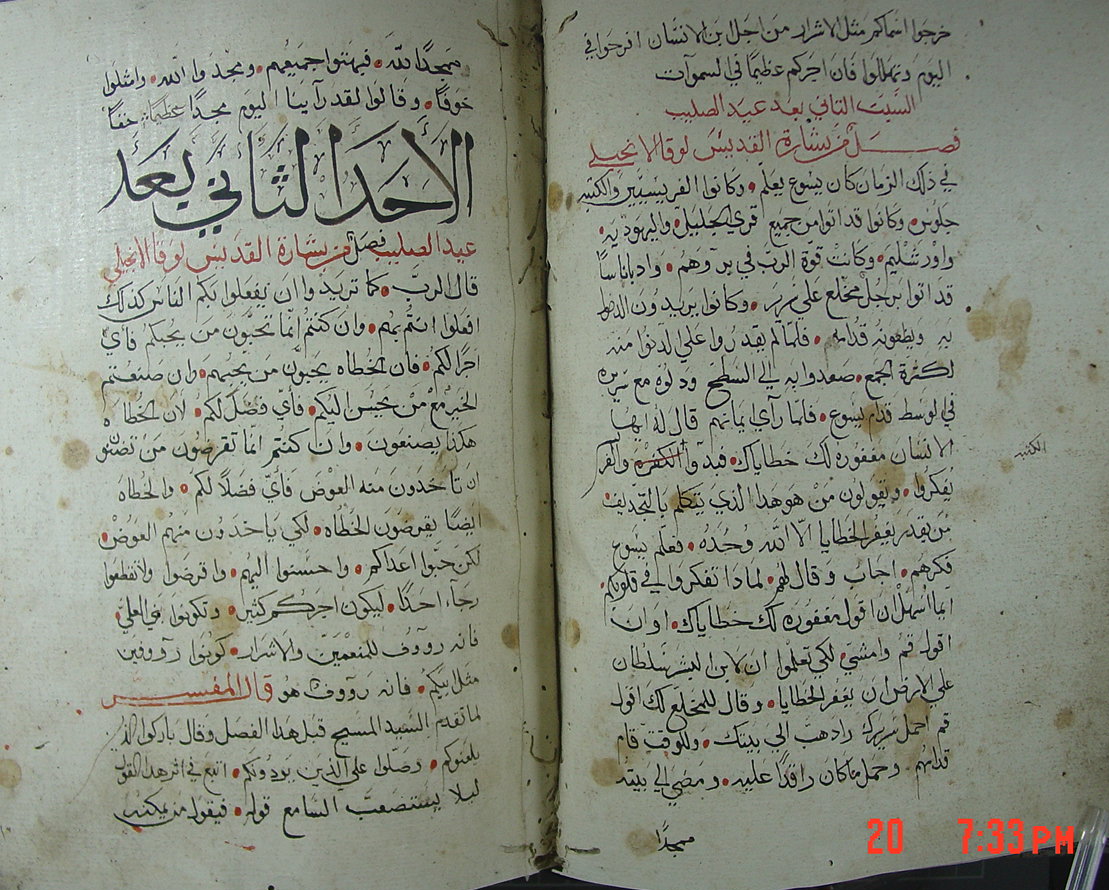 خرجوا اسماكم مثل الاشرار من اجل ابن الانسان افرحوا في
اليوم وتهللوا فان اجركم عظيمًا في السموآت
السبت الثاني بعد عيد الصليب
فصل من بشارة القديس لوقا الانجيلي
في ذلك الزمان كان يسوع يعلم • وكانوا الفريسيين والكتبه
جلوس وكانوا قد اتوا من جميع قري الجليل • واليهوديه •
واورشليم • وكانت قوة الرب في بروهم • واد باناسًا
قد اتوا برجل مخلع علي سرير • وكانوا يريدون الدخول
به ويضعونه قدامه • فلما لم يقدروا علي الدنوا منه
لكثرة الجمع • صعدوا به الي السطح ودلوه مع سريره
في الوسط قدام يسوع • فلما رآي ايمانهم قال له ايها
الانسان مغفوره لك خطاياك • فبدوا الكفره والفر
يفكروا • ويقولون من هو هدا الذي يتكلم بالتجديف •
من يقدر يغفر الخطايا الا الله وحده • فعلم يسوع
فكرهم • اجاب وقال لهم • لمادا تفكروا في قلوبكم •
ايما اسهل ان اقول مغفوره لك خطاياك • او ان
اقول قم وامشي • لكي تعلموا ان لابن البشر سلطان
علي الارض ان يغفر الخطايا • وقال للمخلع لك اقول
قم احمل سريرك وادهب الي بيتك • وللوقت قام
قدامهم وحمل ما كان راقدًا عليه • ومضي الي بيته
ممجدًا
الكتبه
ممجدًا لله • فبهتوا جميعهم • ومجدوا الله • وامتلوا
خوفًا • وقالوا لقد رآينا اليوم مجدًا عظيمًا حقًا
الاحد الثاني بعد
عيد الصليب فصل من بشارة القديس لوقا الانجيلي
قال الرب • كما تريدوا ان يفعلوا بكم الناس كدلك
افعلوا انتم بهم • وان كنتم انما تحبون من يحبكم فأي
اجرًا لكم • فان الخطاه يحبون من يحبهم • وان صنعتم
الخير مع من يحسن اليكم • فأي فضل لكم • لان الخطاه
هكذا يصنعون • وان كنتم انما تقرضون من تضنو
ان تاخدون منه العوض فأي فضلًا لكم • والخطاه
ايضًا يقرضون الخطاه • لكي ياخدون منهم العوض •
لكن حبوا اعداكم • واحسنوا اليهم • واقرضوا ولا تقطعوا
رجاء احدًا • ليكون اجركم كثير • وتكونوا بني العلي •
فانه رووف للمنعمين والاشرار • كونوا رووفين
مثل ابيكم • فانه رووف هو قال المفسر
لما تقدم السيد المسيح قبل هدا الفصل وقال باركوا الذين
يلعنوكم • وصلوا علي الذين يودونكم • اتبع في اثر هدا القول
ليلا يستصعب السامع قوله • فيقول من يمكنه
20 7:33 PM